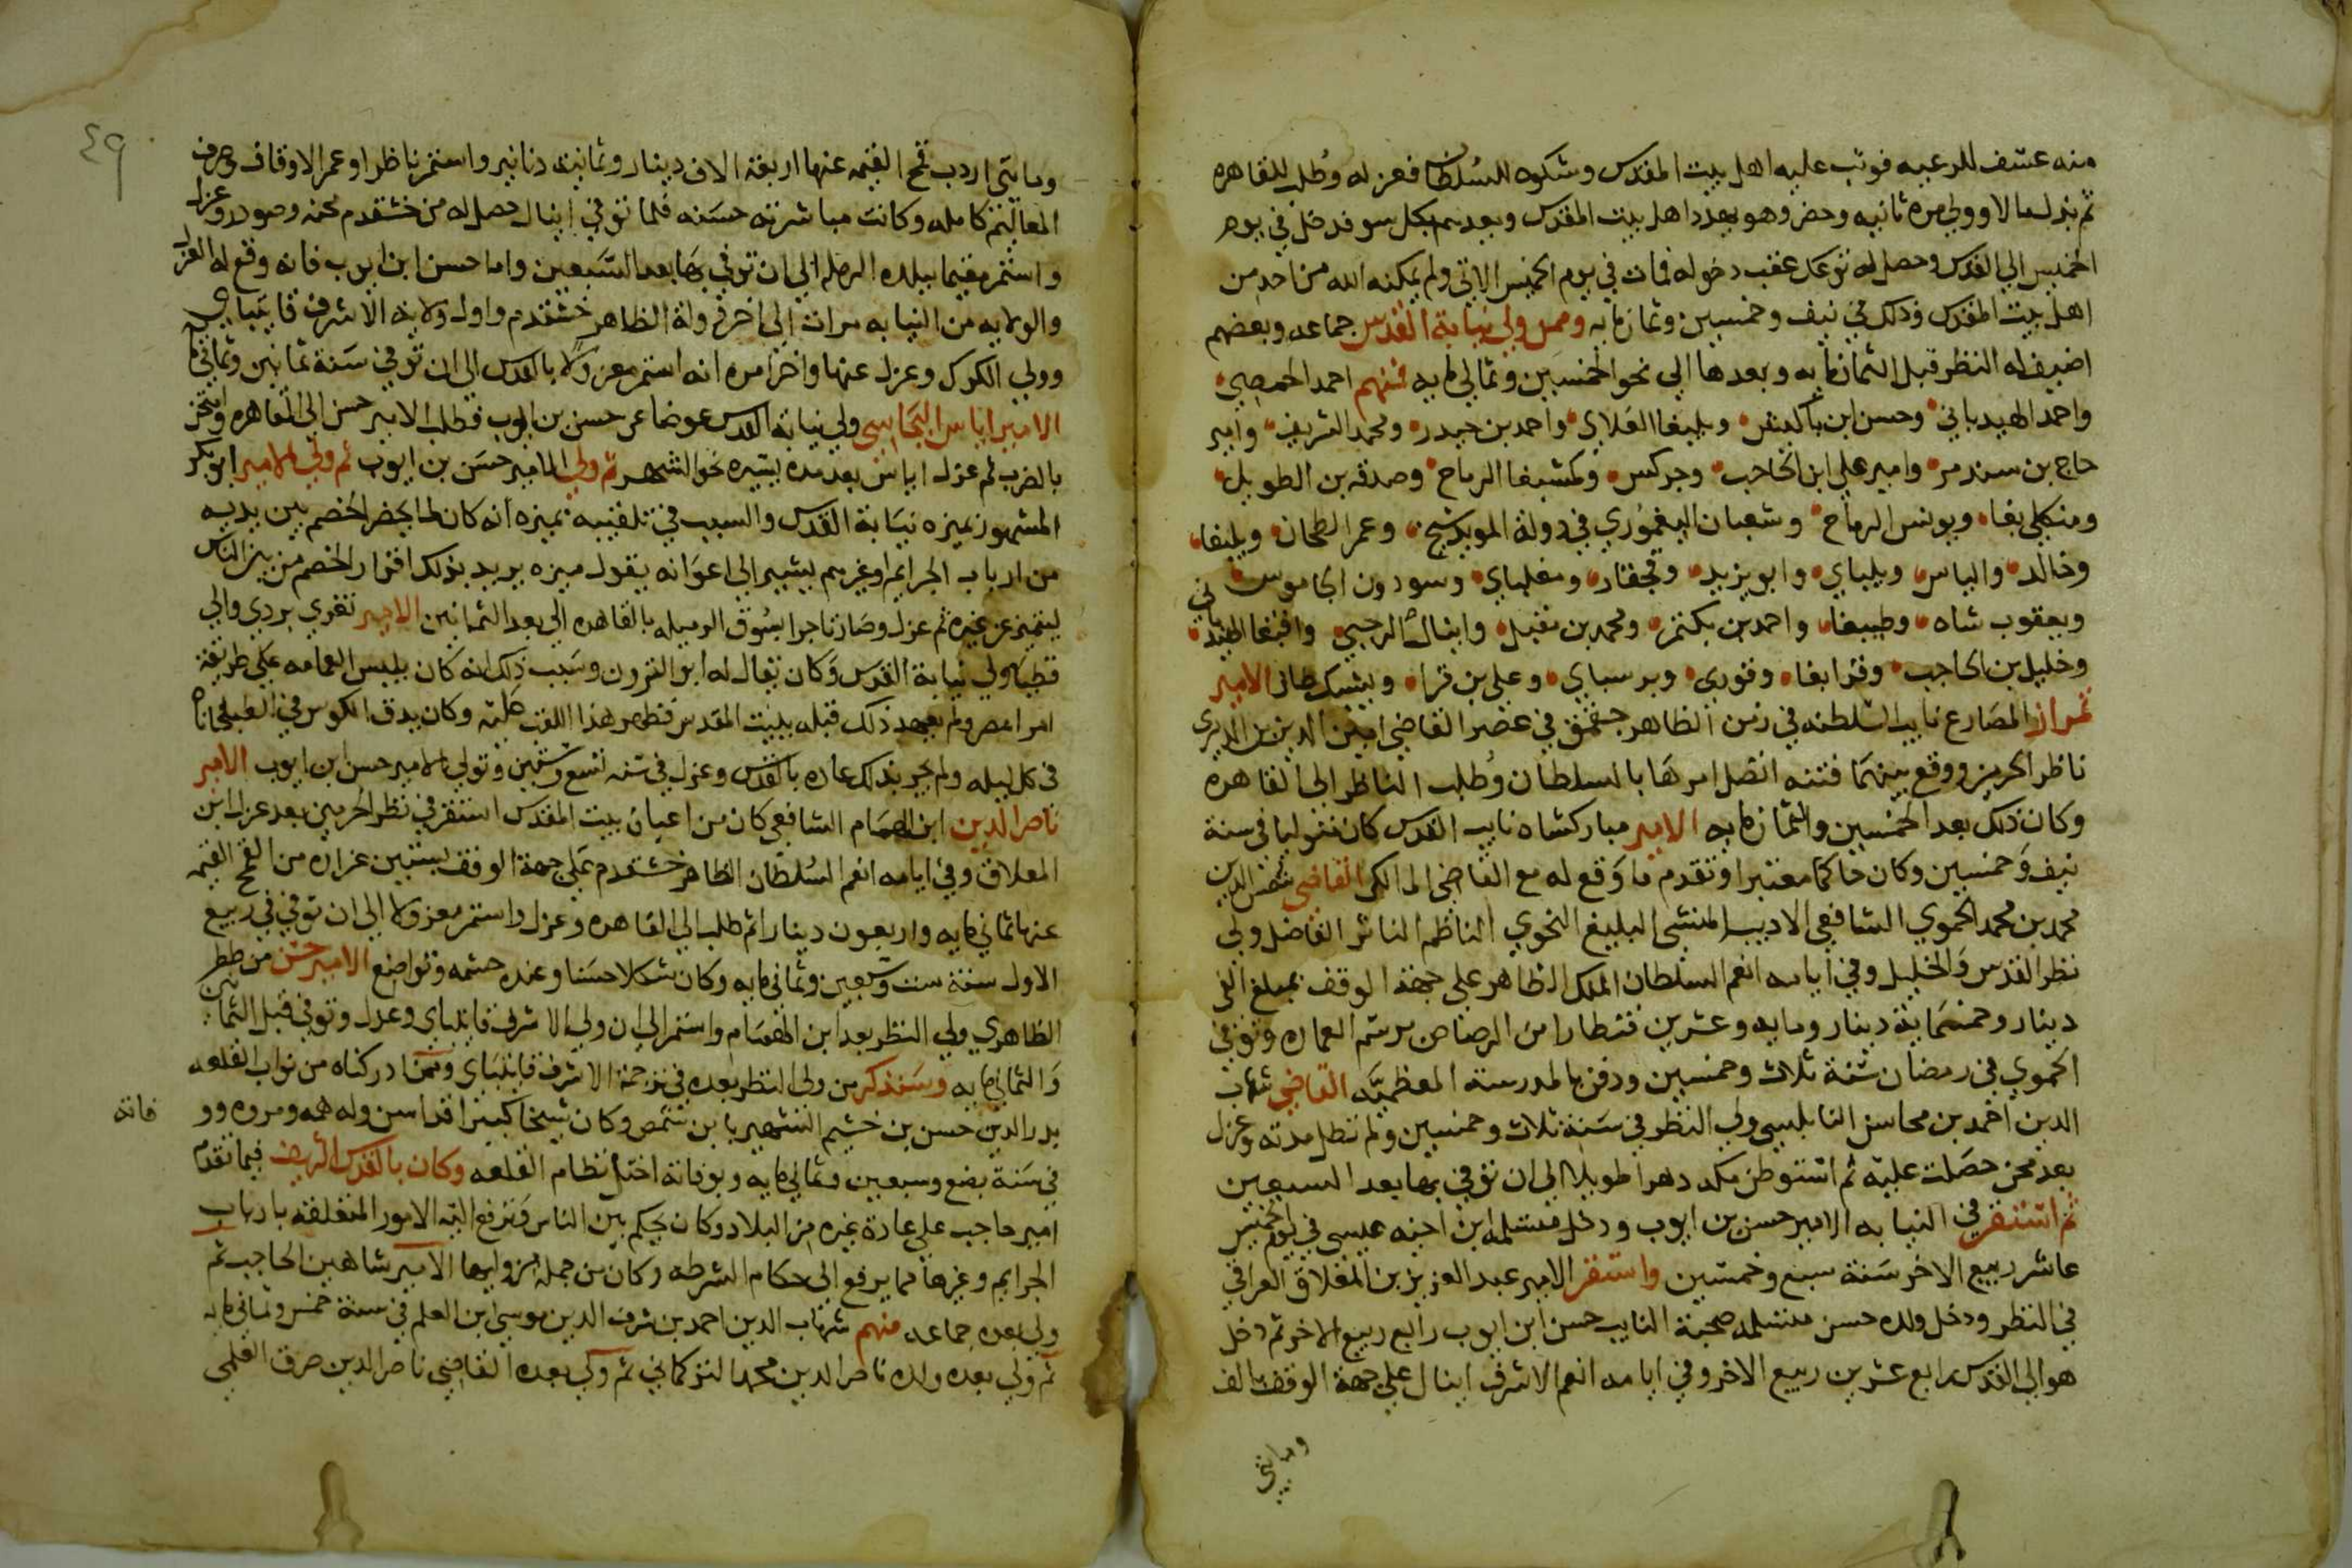 منه عسف للرعيه فوثب عليه اهل بيت المقدس وشكوه للسلطان فعزله وطلب للقاهره
ثم بذل مالا وولي مره ثانيه وحضر وهو يهدد اهل بيت المقدس ويعدهم بكل سو فدخل في يوم
الخميس الي القدس وحصل له توعك عقب دخوله فمات في يوم الخميس الاتي ولم يمكنه الله من احد من
اهل بيت المقدس وذلك في نيف وخمسين وثمانمايه وممن ولي نيابة القدس جماعه وبعضهم
اضيف له النظر قبل الثمانمايه وبعدها الي نحو الخمسين وثماني مايه فمنهم احمد الحمصي
واحمد الهيدباني وحسن ابن باكيش ويلبغا العلاي واحمد بن حيدر ومحمد الشريف وامير
حاج بن سندمر وامير علي ابن الحاجب وجركس وكمشبغا الرماح وصدقه بن الطويل
ومنكلي بغا ويونس الرماح وشعبان اليغموري في دولة المويد شيخ وعمر الطحان ويلبغا
وخالد والياس ويلباي وابو يزيد وقجقار ومغلباي وسودون الجاموس
ويعقوب شاه وطيبغا واحمد بن بكتمر ومحمد بن مقبل واينال الرجبي واقبغا الهيدباني
وخليل بن الحاجب وقرابغا وقوري وبرسباي وعلي بن قرا ويشبك طاز الامير
تمراز المصارع نايب السلطنه في زمن الظاهر جقمق في عصر القاضي امين الدين بن الديري
ناظر الحرمين ووقع بينهما فتنه اتصل امرها بالسلطان وطلب الناظر الي القاهره
وكان ذلك بعد الخمسين والثمانمايه الامير مباركشاه نايب القدس كان متوليا في سنة
نيف وخمسين وكان حاكما معتبرا وتقدم ما وقع له مع القاضي المالكي القاضي شمس الدين
محمد بن محمد الحموي الشافعي الاديب المنشي البليغ النحوي الناظم الناثر الفاضل ولي
نظر القدس والخليل وفي ايامه انعم السلطان الملك الظاهر علي جهة الوقف بمبلغ الفي
دينار وخمسماية دينار ومايه وعشرين قنطارا من الرصاص برسم العماره وتوفي
الحموي في رمضان سنة ثلاث وخمسين ودفن بالمدرسة المعظميه القاضي شهاب
الدين احمد بن محاسن النابلسي ولي النظر في سنة ثلاث وخمسين ولم تطل مدته وعزل
بعد محن حصلت عليه ثم استوطن مكه دهرا طويلا الي ان توفي بها بعد السبعين
ثم استقر في النيابه الامير حسن بن ايوب ودخل متسلمه ابن اخيه عيسي في يوم الخميس
عاشر ربيع الاخر سنة سبع وخمسين واستقر الامير عبد العزيز بن المغلاق العراقي
في النظر ودخل ولده حسن متسلمه صحبة النايب حسن ابن ايوب رابع ربيع الاخر ثم دخل
هو الي القدس رابع عشرين ربيع الاخر وفي ايامه انعم الاشرف اينال علي جهة الوقف بالف
ومايتي
٤٩
ومايتي اردب قمح القيمه عنها اربعة الاف دينار وثمانية دنانير واستمر ناظرا وعمر الاوقاف وصرف
المعاليم كامله وكانت مباشرته حسنه فلما توفي اينال حصل له من خشقدم محنه وصودر وعزل
واستمر مقيما ببلده الرمله الي ان توفي بها بعد السبعين واما حسن ابن ايوب فانه وقع له العزل
والولايه من النيابه مرات الي اخر دولة الظاهر خشقدم واول ولاية الاشرف قايتباي
وولي الكرك وعزل عنها واخر امره انه استمر معزولا بالقدس الي ان توفي سنة ثمانين وثمانمايه
الامير اياس البجاسي ولي نيابة القدس عوضا عن حسن بن ايوب فطلب الامير حسن الي القاهره وامتحن
بالضرب ثم عزل اياس بعد مده يسيره نحو الشهر ثم ولي الامير حسن بن ايوب ثم ولي الامير ابو بكر
المشهور بميزه نيابة القدس والسبب في تلقيبه بميزه انه كان لما يحضر الخصم بين يديه
من ارباب الجرايم او غيرهم يشير الي اعوانه يقول ميزه يريد بذلك افراز الخصم من بين الناس
ليتميز عن غيره ثم عزل وصار تاجرا بسوق الرميله بالقاهره الي بعد الثمانين الامير تغري بردي والي
قطيا ولي نيابة القدس وكان يقال له ابو القرون وسبب ذلك انه كان يلبس العمامه علي طريقة
امرا مصر ولم يعهد ذلك قبله ببيت المقدس فظهر هذا اللقب عليه وكان يدق الكوس في الطبلخاناه
في كل ليله ولم تجر بذلك عاده بالقدس وعزل في سنه تسع وستين وتولي الامير حسن بن ايوب الامير
ناصر الدين ابن الهمام الشافعي كان من اعيان بيت المقدس استقر في نظر الحرمين بعد عزل ابن
المعلاق وفي ايامه انعم السلطان الظاهر خشقدم علي جهة الوقف بستين غراره من القمح القيمه
عنها ثماني مايه واربعون دينارا ثم طلب الي القاهره وعزل واستمر معزولا الي ان توفي في ربيع
الاول سنة ست وسبعين وثماني مايه وكان شكلا حسنا وعنده حشمه وتواضع الامير حسن من ططر
الظاهري ولي النظر بعد ابن الهمام واستمر الي ان ولي الاشرف قايتباي وعزل وتوفي قبل الثمانين
والثماني مايه وسنذكر من ولي النظر بعده في ترجمة الاشرف قايتباي وممن ادركناه من نواب القلعه
بدر الدين حسن بن خشيم الشهير بابن شمص وكان شيخا كبيرا قد اسن وله همه ومروه وو
فاته
في سنة بضع وسبعين وثماني مايه وبوفاته اختل نظام القلعه وكان بالقدس الشريف فيما تقدم
امير حاجب علي عادة غيره من البلاد وكان يحكم بين الناس وترفع اليه الامور المتعلقه بارباب
الجرايم وغيرها مما يرفع الي حكام الشرطه وكان من جملة من وليها الامير شاهين الحاجب ثم
ولي بعده جماعه منهم شهاب الدين احمد بن شرف الدين موسي ابن العلم في سنة خمس وثماني مايه
ثم ولي بعده ولده ناصر الدين محمد التركماني ثم ولي بعده القاضي ناصر الدين صرق العلمي